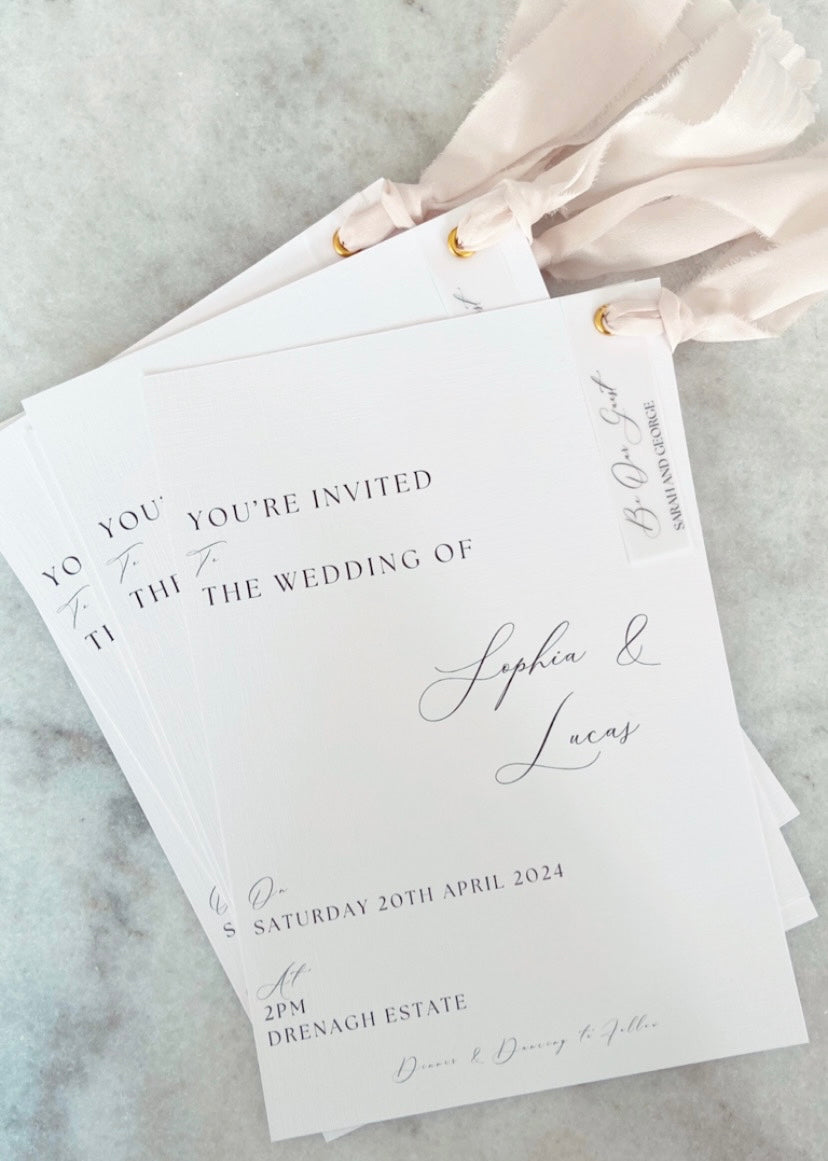 YOU'RE INVITED
To
THE WEDDING OF
Sophia &
Lucas
On
SATURDAY 20TH APRIL 2024
At
2PM
DRENAGH ESTATE
Dinner & Dancing to Follow
Be Our Guest
SARAH AND GEORGE
YOU'
To
THE
YO
To
TH
S